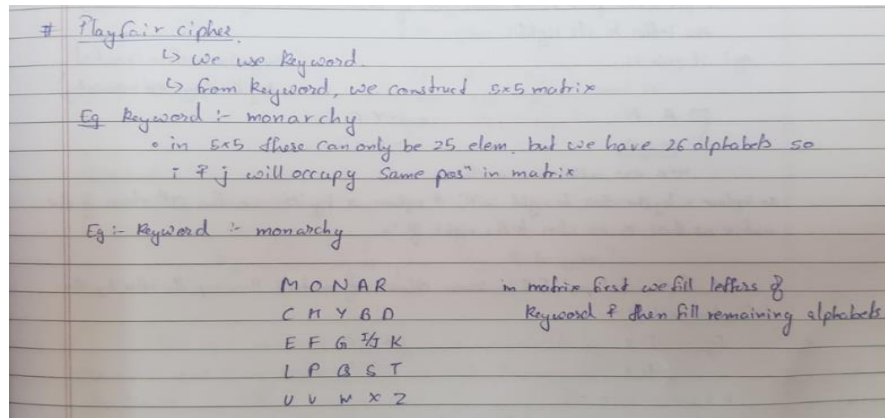 # Playfair cipher
↳ we use keyword.
↳ from keyword, we construct 5x5 matrix
Eg keyword :- monarchy
• in 5x5 there can only be 25 elem. but we have 26 alphabets so
i & j will occupy same posⁿ in matrix
Eg :- Keyword :- monarchy
M O N A R in matrix first we fill letters of
C H Y B D keyword & then fill remaining alphabets
E F G I/J K
L P Q S T
U V W X Z